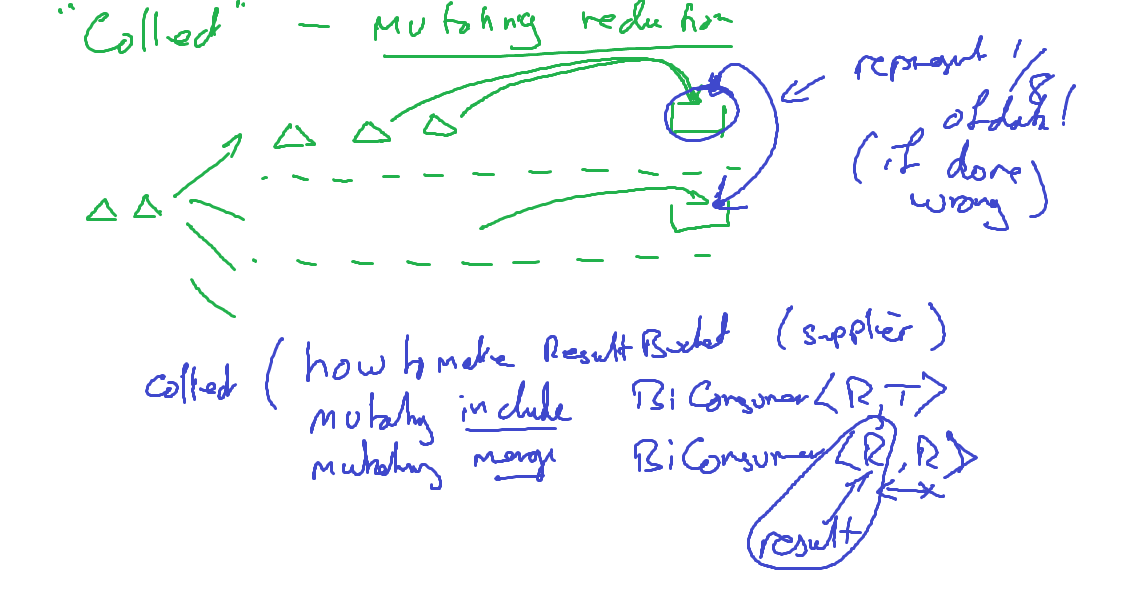 "Collect" - mutating reduction
represent 1/8
of data!
(if done
wrong)
collect (how to make ResultBucket (supplier)
mutating include BiConsumer<R,T>
mutating merge BiConsumer<R,R>
result